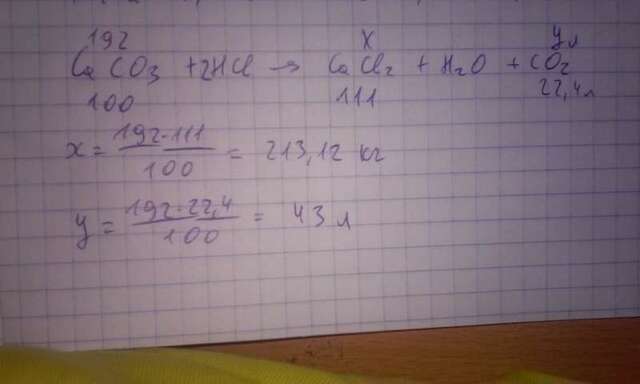 192 x y л
CaCO3 + 2HCl → CaCl2 + H2O + CO2
100 111 22,4 л
x = 192·111 / 100 = 213,12 кг
y = 192·22,4 / 100 = 43 л